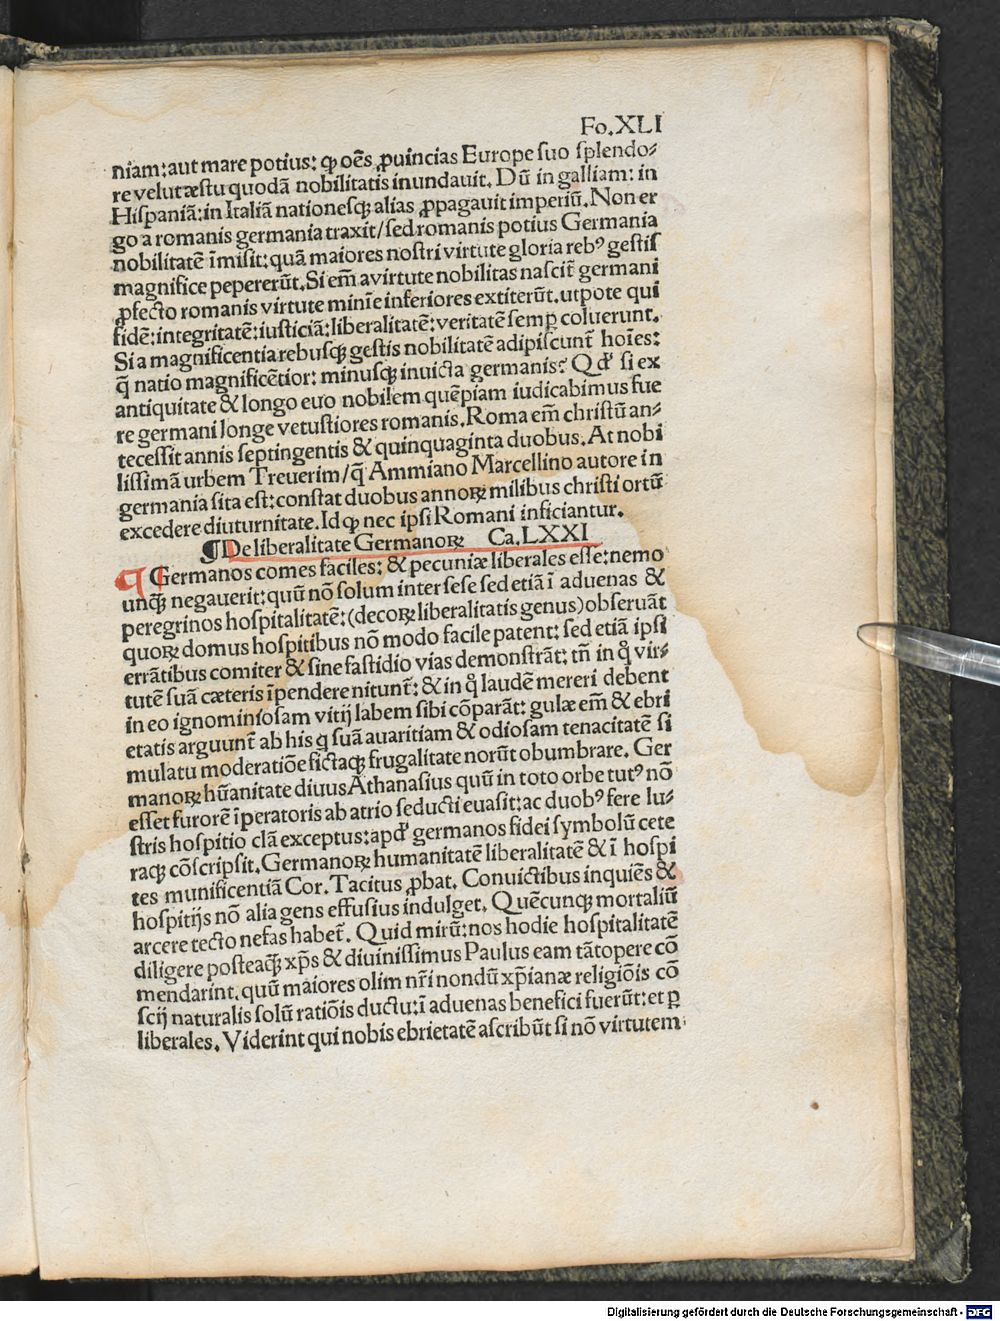 Fo.XLI
niam: aut mare potius: ꝙ oẽs ꝓuincias Europe suo splendo⸗
re velut æstu quodã nobilitatis inundauit. Dũ in galliam: in
Hispaniã: in Italiã nationesqꝫ alias ꝓpagauit imperiũ. Non er
go a romanis germania traxit/sed romanis potius Germania
nobilitatẽ ĩmisit: quã maiores nostri virtute gloria rebꝰ gestis
magnifice pepererũt. Si em̃ a virtute nobilitas nascit̃ germani
ꝓfecto romanis virtute minĩe inferiores extiterũt. utpote qui
fidẽ: integritatẽ: iusticiã: liberalitatẽ: veritatẽ semꝑ coluerunt.
Si a magnificentia rebusqꝫ gestis nobilitatẽ adipiscunt̃ hoĩes:
q̃ natio magnificẽtior: minusqꝫ inuicta germanis? Qđ si ex
antiquitate & longo euo nobilem quẽpiam iudicabimus fue
re germani longe vetustiores romanis. Roma em̃ christũ an⸗
tecessit annis septingentis & quinquaginta duobus. At nobi
lissimã urbem Treuerim/q̃ Ammiano Marcellino autore in
germania sita est: constat duobus annoꝝ milibus christi ortũ
excedere diuturnitate. Id ꝙ nec ipsi Romani inficiantur.
¶ De liberalitate Germanoꝝ Ca.LXXI
¶ Germanos comes faciles: & pecuniæ liberales esse: nemo
unqꝫ̃ negauerit: quũ nõ solum inter sese sed etiã ĩ aduenas &
peregrinos hospitalitatẽ: (decoꝝ liberalitatis genus) obseruãt
quoꝝ domus hospitibus nõ modo facile patent: sed etiã ipsi
errãtibus comiter & sine fastidio vias demonstrãt: tñ in qͦ vir⸗
tutẽ suã cæteris ĩpendere nitunt̃: & in qͦ laudẽ mereri debent
in eo ignominiosam vitij labem sibi cõparãt: gulæ em̃ & ebri
etatis arguunt̃ ab his q̃ suã auaritiam & odiosam tenacitatẽ si
mulatu moderatiõe fictaqꝫ frugalitate norũt obumbrare. Ger
manoꝝ hũanitate diuus Athanasius quũ in toto orbe tutꝰ nõ
esset furorẽ ĩperatoris ab atrio seducti euasit: ac duobꝰ fere lu⸗
stris hospitio clã exceptus: apđ germanos fidei symbolũ cete
raqꝫ cõscripsit. Germanoꝝ humanitatẽ liberalitatẽ & ĩ hospi
tes munificentiã Cor. Tacitus ꝓbat. Conuictibus inquiẽs &
hospitijs nõ alia gens effusius indulget. Quẽcunqꝫ mortaliũ
arcere tecto nefas habet̃. Quid mirũ: nos hodie hospitalitatẽ
diligere posteaqꝫ̃ xp̃s & diuinissimus Paulus eam tãtopere cõ
mendarint. quũ maiores olim nr̃i nondũ xp̃ianæ religiõis cõ
scij naturalis solũ ratiõis ductu: ĩ aduenas benefici fuerũt: et ꝑ
liberales. Viderint qui nobis ebrietatẽ ascribũt si nõ virtutem
Digitalisierung gefördert durch die Deutsche Forschungsgemeinschaft - DFG